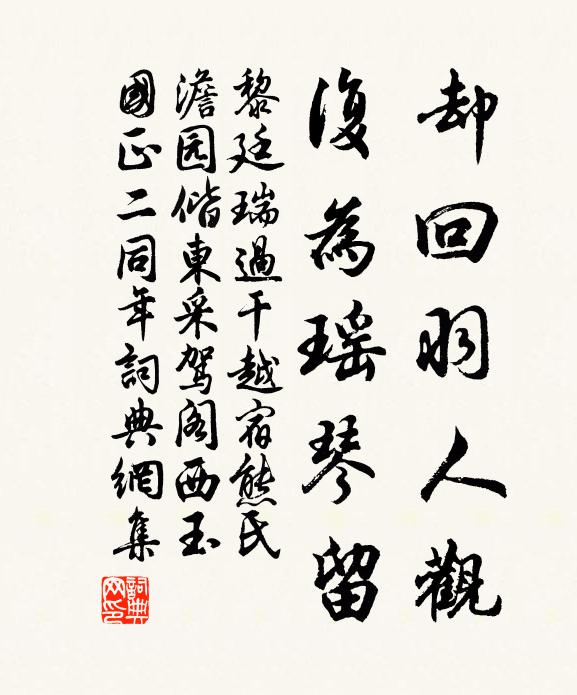 却回羽人觀
復為瑶琴留
黎廷瑞過干越宿熊氏
澹园偕東采駕阁西玉
國正二同年詞典網集
詞典网印